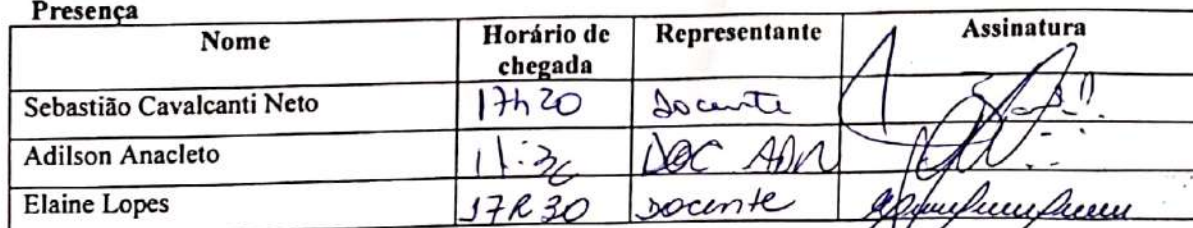 Presença
Nome Horário de chegada Representante Assinatura
Sebastião Cavalcanti Neto 17h20 Docente
Adilson Anacleto DOC ADM
Elaine Lopes 17h30 Docente